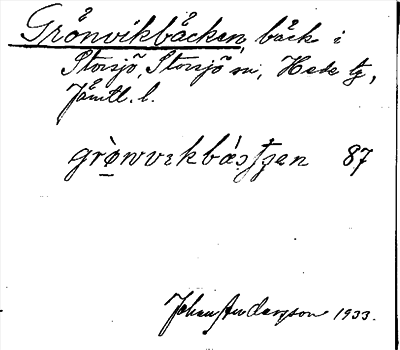 Grönvikbäcken, bäck i
Storsjö, Storsjö sn, Hede tg,
Jämtl. l.
grònvɩkbáʂʈʂen 87
Johan Andersson 1933.